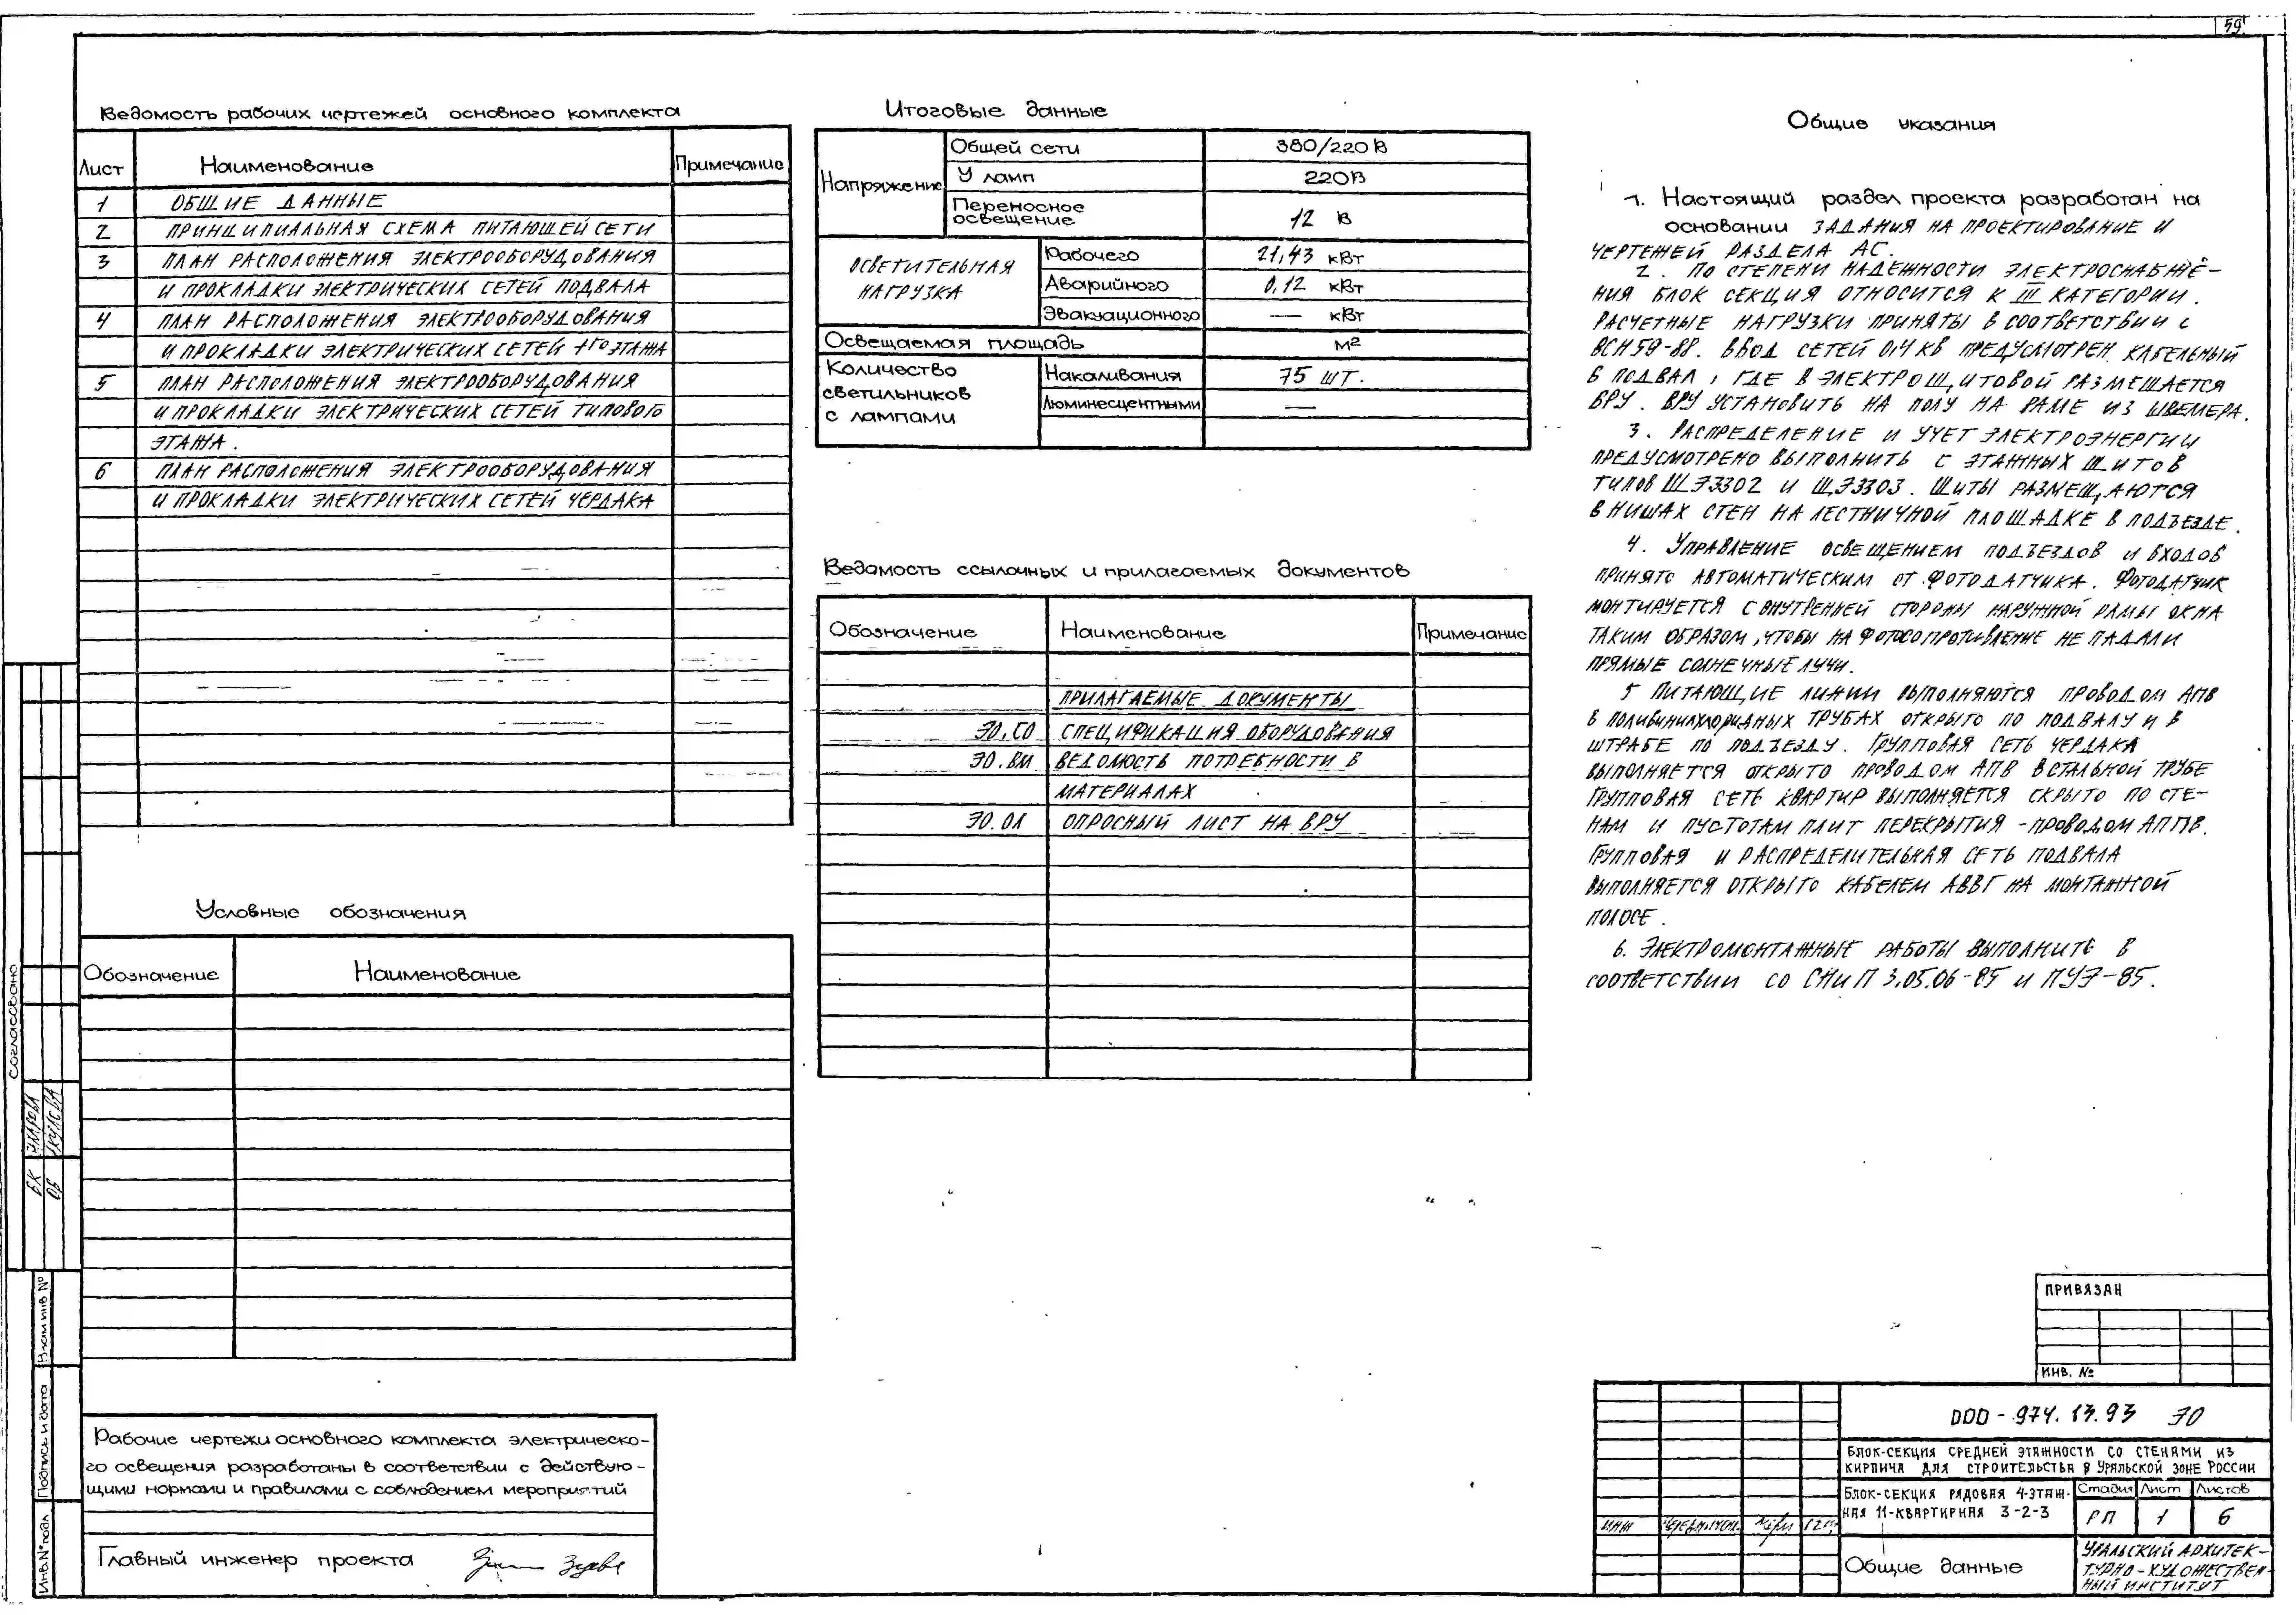 59
Ведомость рабочих чертежей основного комплекта
Лист Наименование Примечание
1 ОБЩИЕ ДАННЫЕ
2 ПРИНЦИПИАЛЬНАЯ СХЕМА ПИТАЮЩЕЙ СЕТИ
3 ПЛАН РАСПОЛОЖЕНИЯ ЭЛЕКТРООБОРУДОВАНИЯ
И ПРОКЛАДКИ ЭЛЕКТРИЧЕСКИХ СЕТЕЙ ПОДВАЛА
4 ПЛАН РАСПОЛОЖЕНИЯ ЭЛЕКТРООБОРУДОВАНИЯ
И ПРОКЛАДКИ ЭЛЕКТРИЧЕСКИХ СЕТЕЙ 1ГО ЭТАЖА
5 ПЛАН РАСПОЛОЖЕНИЯ ЭЛЕКТРООБОРУДОВАНИЯ
И ПРОКЛАДКИ ЭЛЕКТРИЧЕСКИХ СЕТЕЙ ТИПОВОГО
ЭТАЖА.
6 ПЛАН РАСПОЛОЖЕНИЯ ЭЛЕКТРООБОРУДОВАНИЯ
И ПРОКЛАДКИ ЭЛЕКТРИЧЕСКИХ СЕТЕЙ ЧЕРДАКА
Условные обозначения
Обозначение Наименование
Рабочие чертежи основного комплекта электрическо-
го освещения разработаны в соответствии с действую-
щими нормами и правилами с соблюдением мероприятий
Главный инженер проекта
Итоговые данные
Напряжение Общей сети 380/220 В
У ламп 220В
Переносное
освещение 12 В
ОСВЕТИТЕЛЬНАЯ
НАГРУЗКА
Рабочего 21,43 кВт
Аварийного 0,12 кВт
Эвакуационного — кВт
Освещаемая площадь м²
Количество
светильников
с лампами
Накаливания 75 ШТ.
Люминесцентными —
Ведомость ссылочных и прилагаемых документов
Обозначение Наименование Примечание
ПРИЛАГАЕМЫЕ ДОКУМЕНТЫ
ЭО.СО СПЕЦИФИКАЦИЯ ОБОРУДОВАНИЯ
ЭО.ВМ ВЕДОМОСТЬ ПОТРЕБНОСТИ В
МАТЕРИАЛАХ
ЭО.ОЛ ОПРОСНЫЙ ЛИСТ НА ВРУ
Общие указания
1. Настоящий раздел проекта разработан на
основании ЗАДАНИЯ НА ПРОЕКТИРОВАНИЕ И
ЧЕРТЕЖЕЙ РАЗДЕЛА АС.
2. ПО СТЕПЕНИ НАДЕЖНОСТИ ЭЛЕКТРОСНАБЖЕ-
НИЯ БЛОК СЕКЦИЯ ОТНОСИТСЯ К III КАТЕГОРИИ.
РАСЧЕТНЫЕ НАГРУЗКИ ПРИНЯТЫ В СООТВЕТСТВИИ С
ВСН 59-88. ВВОД СЕТЕЙ 0,4 КВ ПРЕДУСМОТРЕН КАБЕЛЬНЫЙ
В ПОДВАЛ, ГДЕ В ЭЛЕКТРОЩИТОВОЙ РАЗМЕЩАЕТСЯ
ВРУ. ВРУ УСТАНОВИТЬ НА ПОЛУ НА РАМЕ ИЗ ШВЕЛЕРА.
3. РАСПРЕДЕЛЕНИЕ И УЧЕТ ЭЛЕКТРОЭНЕРГИИ
ПРЕДУСМОТРЕНО ВЫПОЛНИТЬ С ЭТАЖНЫХ ЩИТОВ
ТИПОВ ЩЭ3302 И ЩЭ3303. ЩИТЫ РАЗМЕЩАЮТСЯ
В НИШАХ СТЕН НА ЛЕСТНИЧНОЙ ПЛОЩАДКЕ В ПОДЪЕЗДЕ.
4. УПРАВЛЕНИЕ ОСВЕЩЕНИЕМ ПОДЪЕЗДОВ И ВХОДОВ
ПРИНЯТО АВТОМАТИЧЕСКИМ ОТ ФОТОДАТЧИКА. ФОТОДАТЧИК
МОНТИРУЕТСЯ С ВНУТРЕННЕЙ СТОРОНЫ НАРУЖНОЙ РАМЫ ОКНА
ТАКИМ ОБРАЗОМ, ЧТОБЫ НА ФОТОСОПРОТИВЛЕНИЕ НЕ ПАДАЛИ
ПРЯМЫЕ СОЛНЕЧНЫЕ ЛУЧИ.
5 ПИТАЮЩИЕ ЛИНИИ ВЫПОЛНЯЮТСЯ ПРОВОДОМ АПВ
В ПОЛИВИНИЛХЛОРИДНЫХ ТРУБАХ ОТКРЫТО ПО ПОДВАЛУ И В
ШТРАБЕ ПО ПОДЪЕЗДУ. ГРУППОВАЯ СЕТЬ ЧЕРДАКА
ВЫПОЛНЯЕТСЯ ОТКРЫТО ПРОВОДОМ АПВ В СТАЛЬНОЙ ТРУБЕ
ГРУППОВАЯ СЕТЬ КВАРТИР ВЫПОЛНЯЕТСЯ СКРЫТО ПО СТЕ-
НАМ И ПУСТОТАМ ПЛИТ ПЕРЕКРЫТИЯ - ПРОВОДОМ АППВ.
ГРУППОВАЯ И РАСПРЕДЕЛИТЕЛЬНАЯ СЕТЬ ПОДВАЛА
ВЫПОЛНЯЕТСЯ ОТКРЫТО КАБЕЛЕМ АВВГ НА МОНТАЖНОЙ
ПОЛОСЕ.
6. ЭЛЕКТРОМОНТАЖНЫЕ РАБОТЫ ВЫПОЛНИТЬ В
СООТВЕТСТВИИ СО СНиП 3.05.06-85 И ПУЭ-85.
ПРИВЯЗАН
ИНВ. №
ДОО-974.13.93 ЭО
БЛОК-СЕКЦИЯ СРЕДНЕЙ ЭТАЖНОСТИ СО СТЕНАМИ ИЗ
КИРПИЧА ДЛЯ СТРОИТЕЛЬСТВА В УРАЛЬСКОЙ ЗОНЕ РОССИИ
БЛОК-СЕКЦИЯ РЯДОВАЯ 4-ЭТАЖ-
НАЯ 11-КВАРТИРНАЯ 3-2-3
Стадия Лист Листов
РП 1 6
ИНЖ
Общие данные
УРАЛЬСКИЙ АРХИТЕК-
ТУРНО-ХУДОЖЕСТВЕН-
НЫЙ ИНСТИТУТ
Согласовано
БК
ОБ
Взам инв №
Подпись и дата
Инв.№ подл